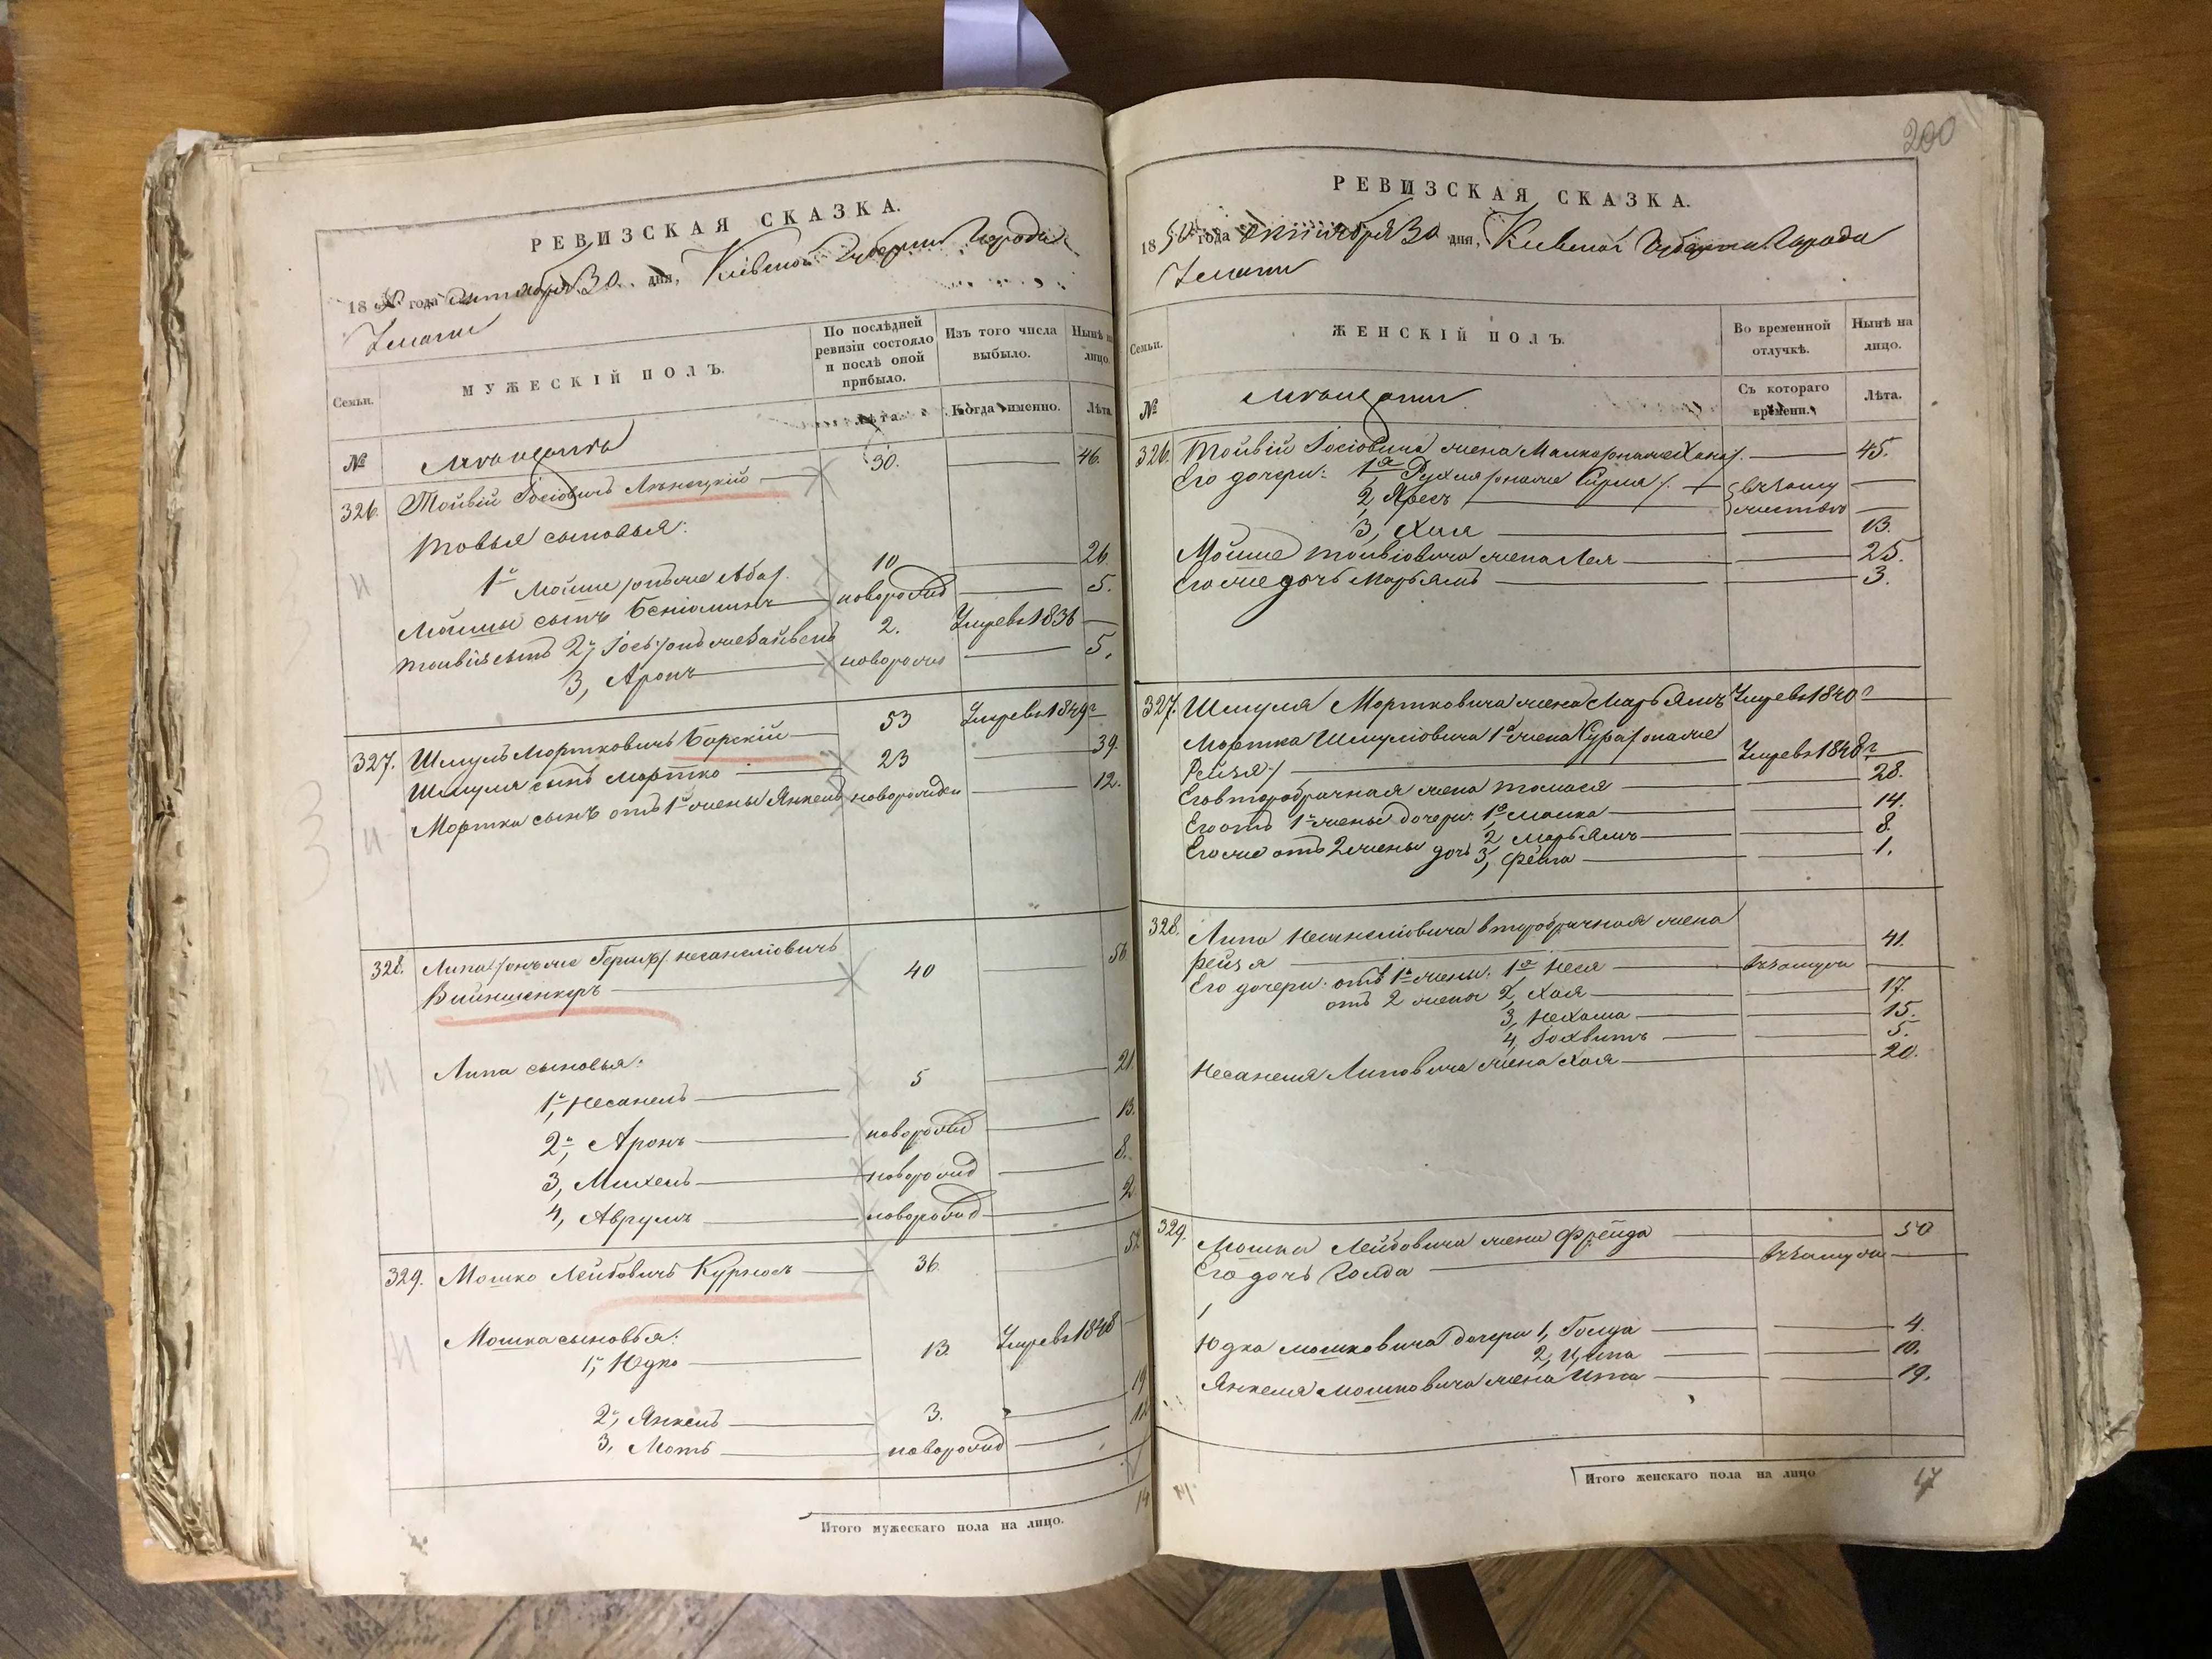 РЕВИЗСКАЯ СКАЗКА.
18 года октября 30 дня, Киевской Губернии Города
Умани
Семьи.
МУЖЕСКІЙ ПОЛЪ.
По послѣдней ревизіи состояло и послѣ оной прибыло.
Изъ того числа выбыло.
Нынѣ на лицо.
№
Лѣта.
Когда именно.
Лѣта.
326. Тойвій Іосіовичъ 30. 46.
Товья сыновья:
1й Мойше 10 26.
Мойшы сынъ Беніоминъ новорожд 5.
2й 2. Умре въ 1836
3, Аронъ новорожд 5.
327. Шмуль Мортковичъ Борскій 53 Умре въ 1849г
Шмуля сынъ Мортко 23 39.
Мортка сынъ отъ 1й жены Янкель новорожден 12.
328. Липа /онъ же Герш/ Несанеліовичъ
Вайншенкеръ 40 56
Липа сыновья:
1й, Несанель 5 21.
2й, Аронъ новорожд 13.
3, Михель новорожд 8.
4, Аврумъ новорожд 2
329. Мошко Лейбовичъ Курносъ 36. 52
Мошка сыновья:
1й, Юдко 13. Умре въ 1848
2й, Янкель 3. 19
3, Моть новорожд
Итого мужескаго пола на лицо. 14
200
РЕВИЗСКАЯ СКАЗКА.
1850 года октября 30 дня, Киевской Губернии Города
Умани
Семьи.
ЖЕНСКІЙ ПОЛЪ.
Во временной отлучкѣ.
Нынѣ на лицо.
№
Съ котораго времени.
Лѣта.
326. Тойвій Іосіовича жена Малка /она же Хана/. 45.
Его дочери: 1я Рухля /она же Сирма/. въ заму
2, жествѣ
3, Хая 13.
Мойше Тойвіовича жена Лея 25.
Его же дочь Марьямъ 3.
327. Шмуля Мортковича жена Марьямъ Умре въ 1840г
Мортка Шмуліовича 1я жена Сура /она же
Рейзя/ Умре въ 1848г
Его второбрачная жена Томася 28.
Его отъ 1й жены дочери: 1я Малка 14.
2, Марьямъ 8.
Его же отъ 2 жены дочь 3, Фейга 1.
328. Липа Несанеліовича второбрачная жена
Рейзя 41.
Его дочери: отъ 1й жены: 1я Неся въ замуж
отъ 2 жены 2, Хая 17.
3, Нехама 15.
4, Іохвитъ 5.
Несанеля Липовича жена Хая 20.
329. Мошка Лейбовича жена Фрейда 50
Его дочь Голда въ замуж
Юдка Мошковича дочери 1, Голда 4.
2, 10.
Янкеля Мошковича жена Ита 19.
Итого женскаго пола на лицо 17